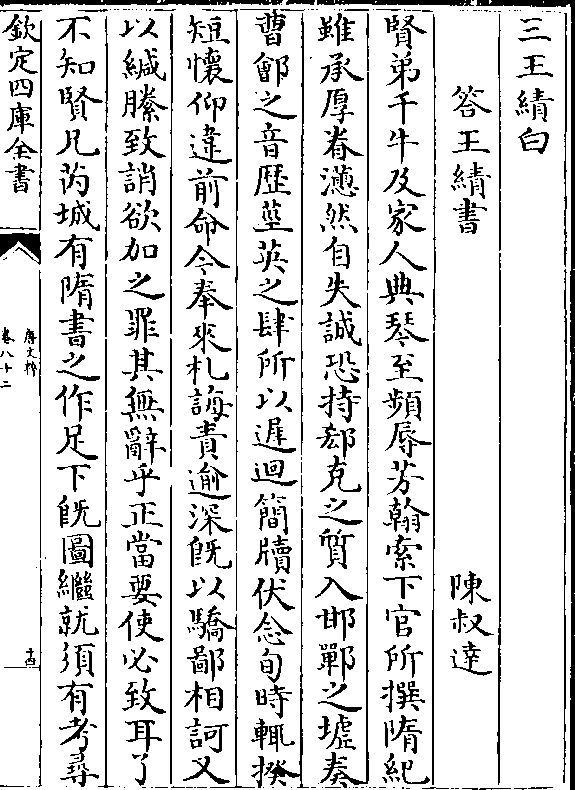 三王績白
答王績書 陳叔達
賢弟千牛及家人典琴至頻辱芳翰索下官所撰隋紀
雖承厚眷懣然自失誠恐持郄克之質入邯鄲之墟奏
曹鄶之音歷莖英之肆所以遲迴簡牘伏念旬時輒揆
短懷仰違前命今奉來札誨責逾深旣以驕鄙相訶又
以緘縢致誚欲加之罪其無辭乎正當要使必致耳了
不知賢兄芮城有隋書之作足下旣圖繼就須有考尋
欽定四庫全書
唐文粹
卷八十二
十四